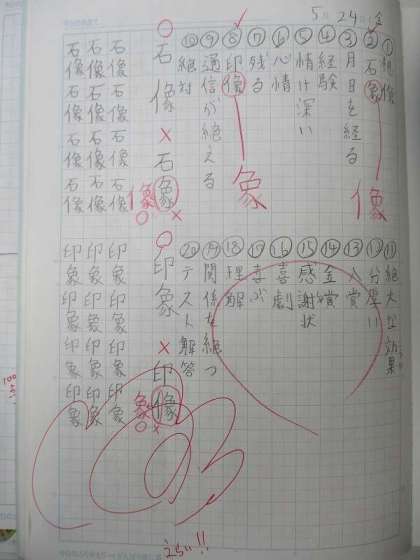 5月24日(金)
②石象
像
③月日を経る
④経験
⑤情け深い
⑥心情
⑦残る
⑧印像
象
⑨通信が絶える
⑩絶対
○石像×石象
像○×
石像石像石像石像
石像石像石像石像
石像石像石像石像
⑪絶大な効果
⑬入賞
⑭金賞
⑮感謝状
⑯喜劇
⑰喜ぶ
⑱理解
⑲関係を絶つ
⑳テスト解答
○印象×印像
象○×
印象印象印象印象
印象印象印象印象
印象印象印象印象
えらい!!
100